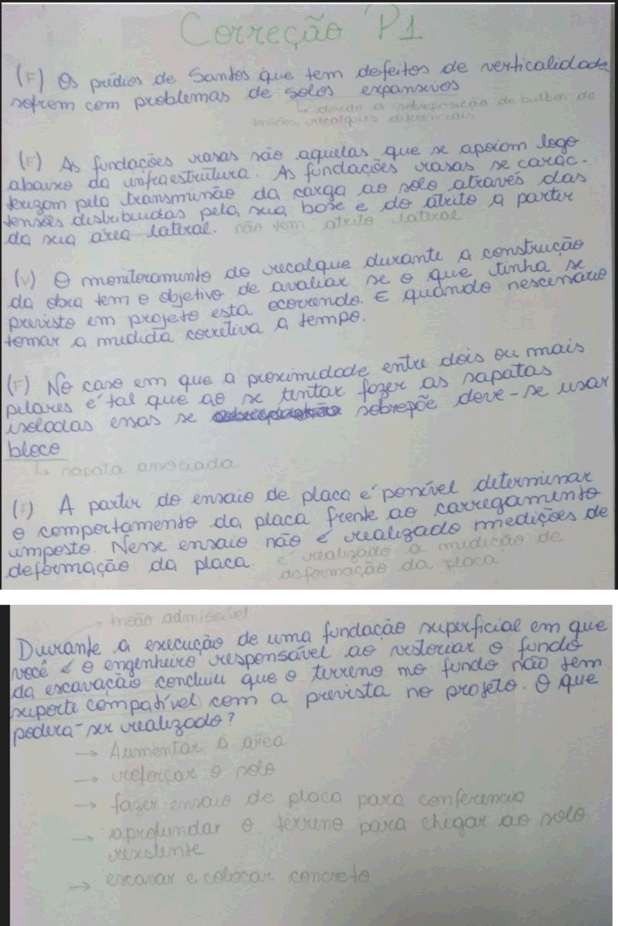 Correção P1
(F) Os prédios de Santos que tem defeitos de verticalidade
sofrem com problemas de solos expansivos
↳ devido a sobreposição de bulbos de
tensões, recalques diferenciais
(F) As fundações rasas são aquelas que se apoiam logo
abaixo da infraestrutura. As fundações rasas se carac-
terizam pela transmissão da carga ao solo através das
tensões distribuidas pela sua base e do atrito a partir
da sua área lateral. não tem atrito lateral
(V) O monitoramento do recalque durante a construção
da obra tem o objetivo de avaliar se o que tinha se
previsto em projeto esta ocorrendo. E quando nescessário
tomar a medida corretiva a tempo.
(F) No caso em que a proximidade entre dois ou mais
pilares é tal que ao se tentar fazer as sapatas
isoladas essas se sobrepõe deve-se usar
bloco
↳ sapata associada
(F) A partir do ensaio de placa é possível determinar
o comportamento da placa frente ao carregamento
imposto. Nesse ensaio não é realizado medições de
deformação da placa. é realizado a medição de
deformação da placa
→ tensão admissível
Durante a execução de uma fundação superficial em que
você é o engenheiro responsável ao vistoriar o fundo
da escavação concluiu que o terreno no fundo não tem
suporte compatível com a prevista no projeto. O que
podera-ser realizado?
→ Aumentar a área
→ reforçar o solo
→ fazer ensaio de placa para conferencia
→ aprofundar o terreno para chegar ao solo
resistente
→ escavar e colocar concreto